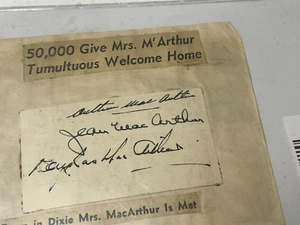 50,000 Give Mrs. M'Arthur
Tumultuous Welcome Home
Arthur MacArthur
Jean MacArthur
Douglas MacArthur
in Dixie Mrs. MacArthur Is Met